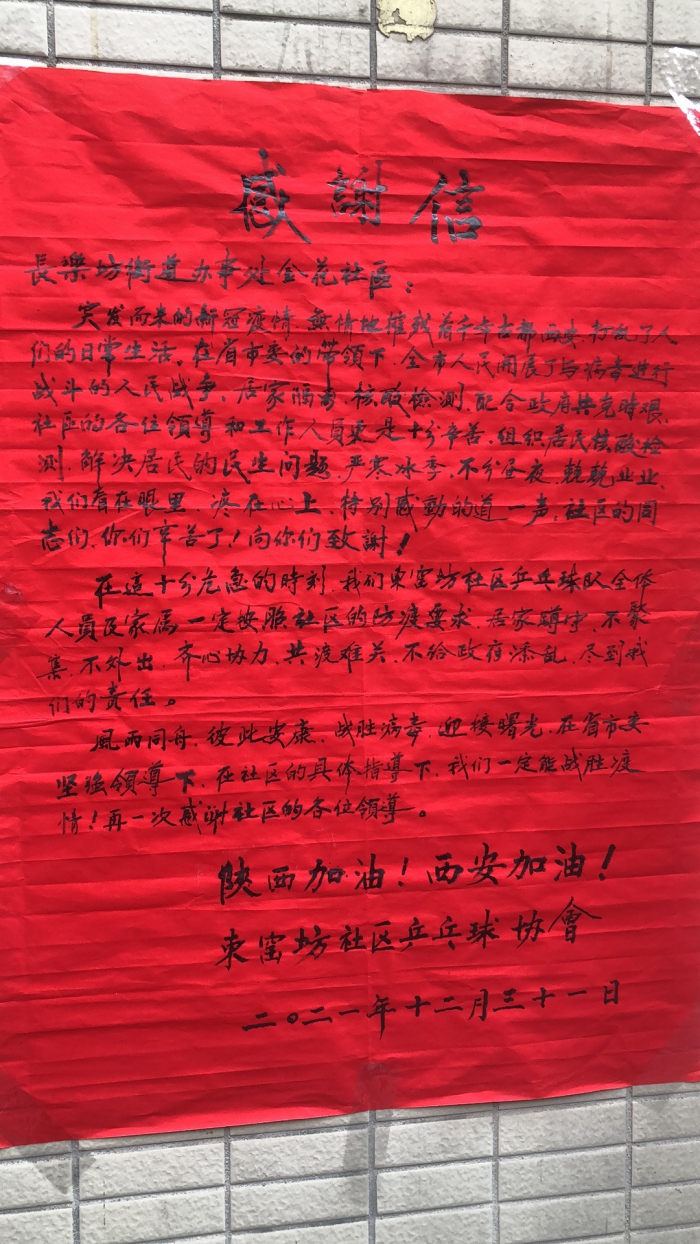 感謝信
長樂坊街道办事处金花社区：
突发而来的新冠疫情，無情地摧残着千年古都西安，打乱了人
们的日常生活，在省市委的带領下，全市人民開展了与病毒進行
战斗的人民战争，居家隔离，核酸檢測，配合政府共克時艰，
社区的各位領導和工作人員更是十分辛苦，组织居民核酸检
測，解决居民的民生问题，严寒冰季，不分昼夜，兢兢业业，
我们看在眼里，疼在心上，特别感動的道一声，社区的同
志们，你们辛苦了！向你们致謝！
在這十分危急的時刻，我们東窑坊社区乒乓球队全体
人員及家属一定按照社区的防疫要求，居家蹲守，不聚
集，不外出，齐心协力，共渡难关，不给政府添乱，尽到我
们的责任。
風雨同舟，彼此安康，战胜病毒，迎接曙光，在省市委
坚强領導下，在社区的具体指導下，我们一定能战胜疫
情！再一次感謝社区的各位領導。
陕西加油！西安加油！
東窑坊社区乒乓球协會
二〇二一年十二月三十一日